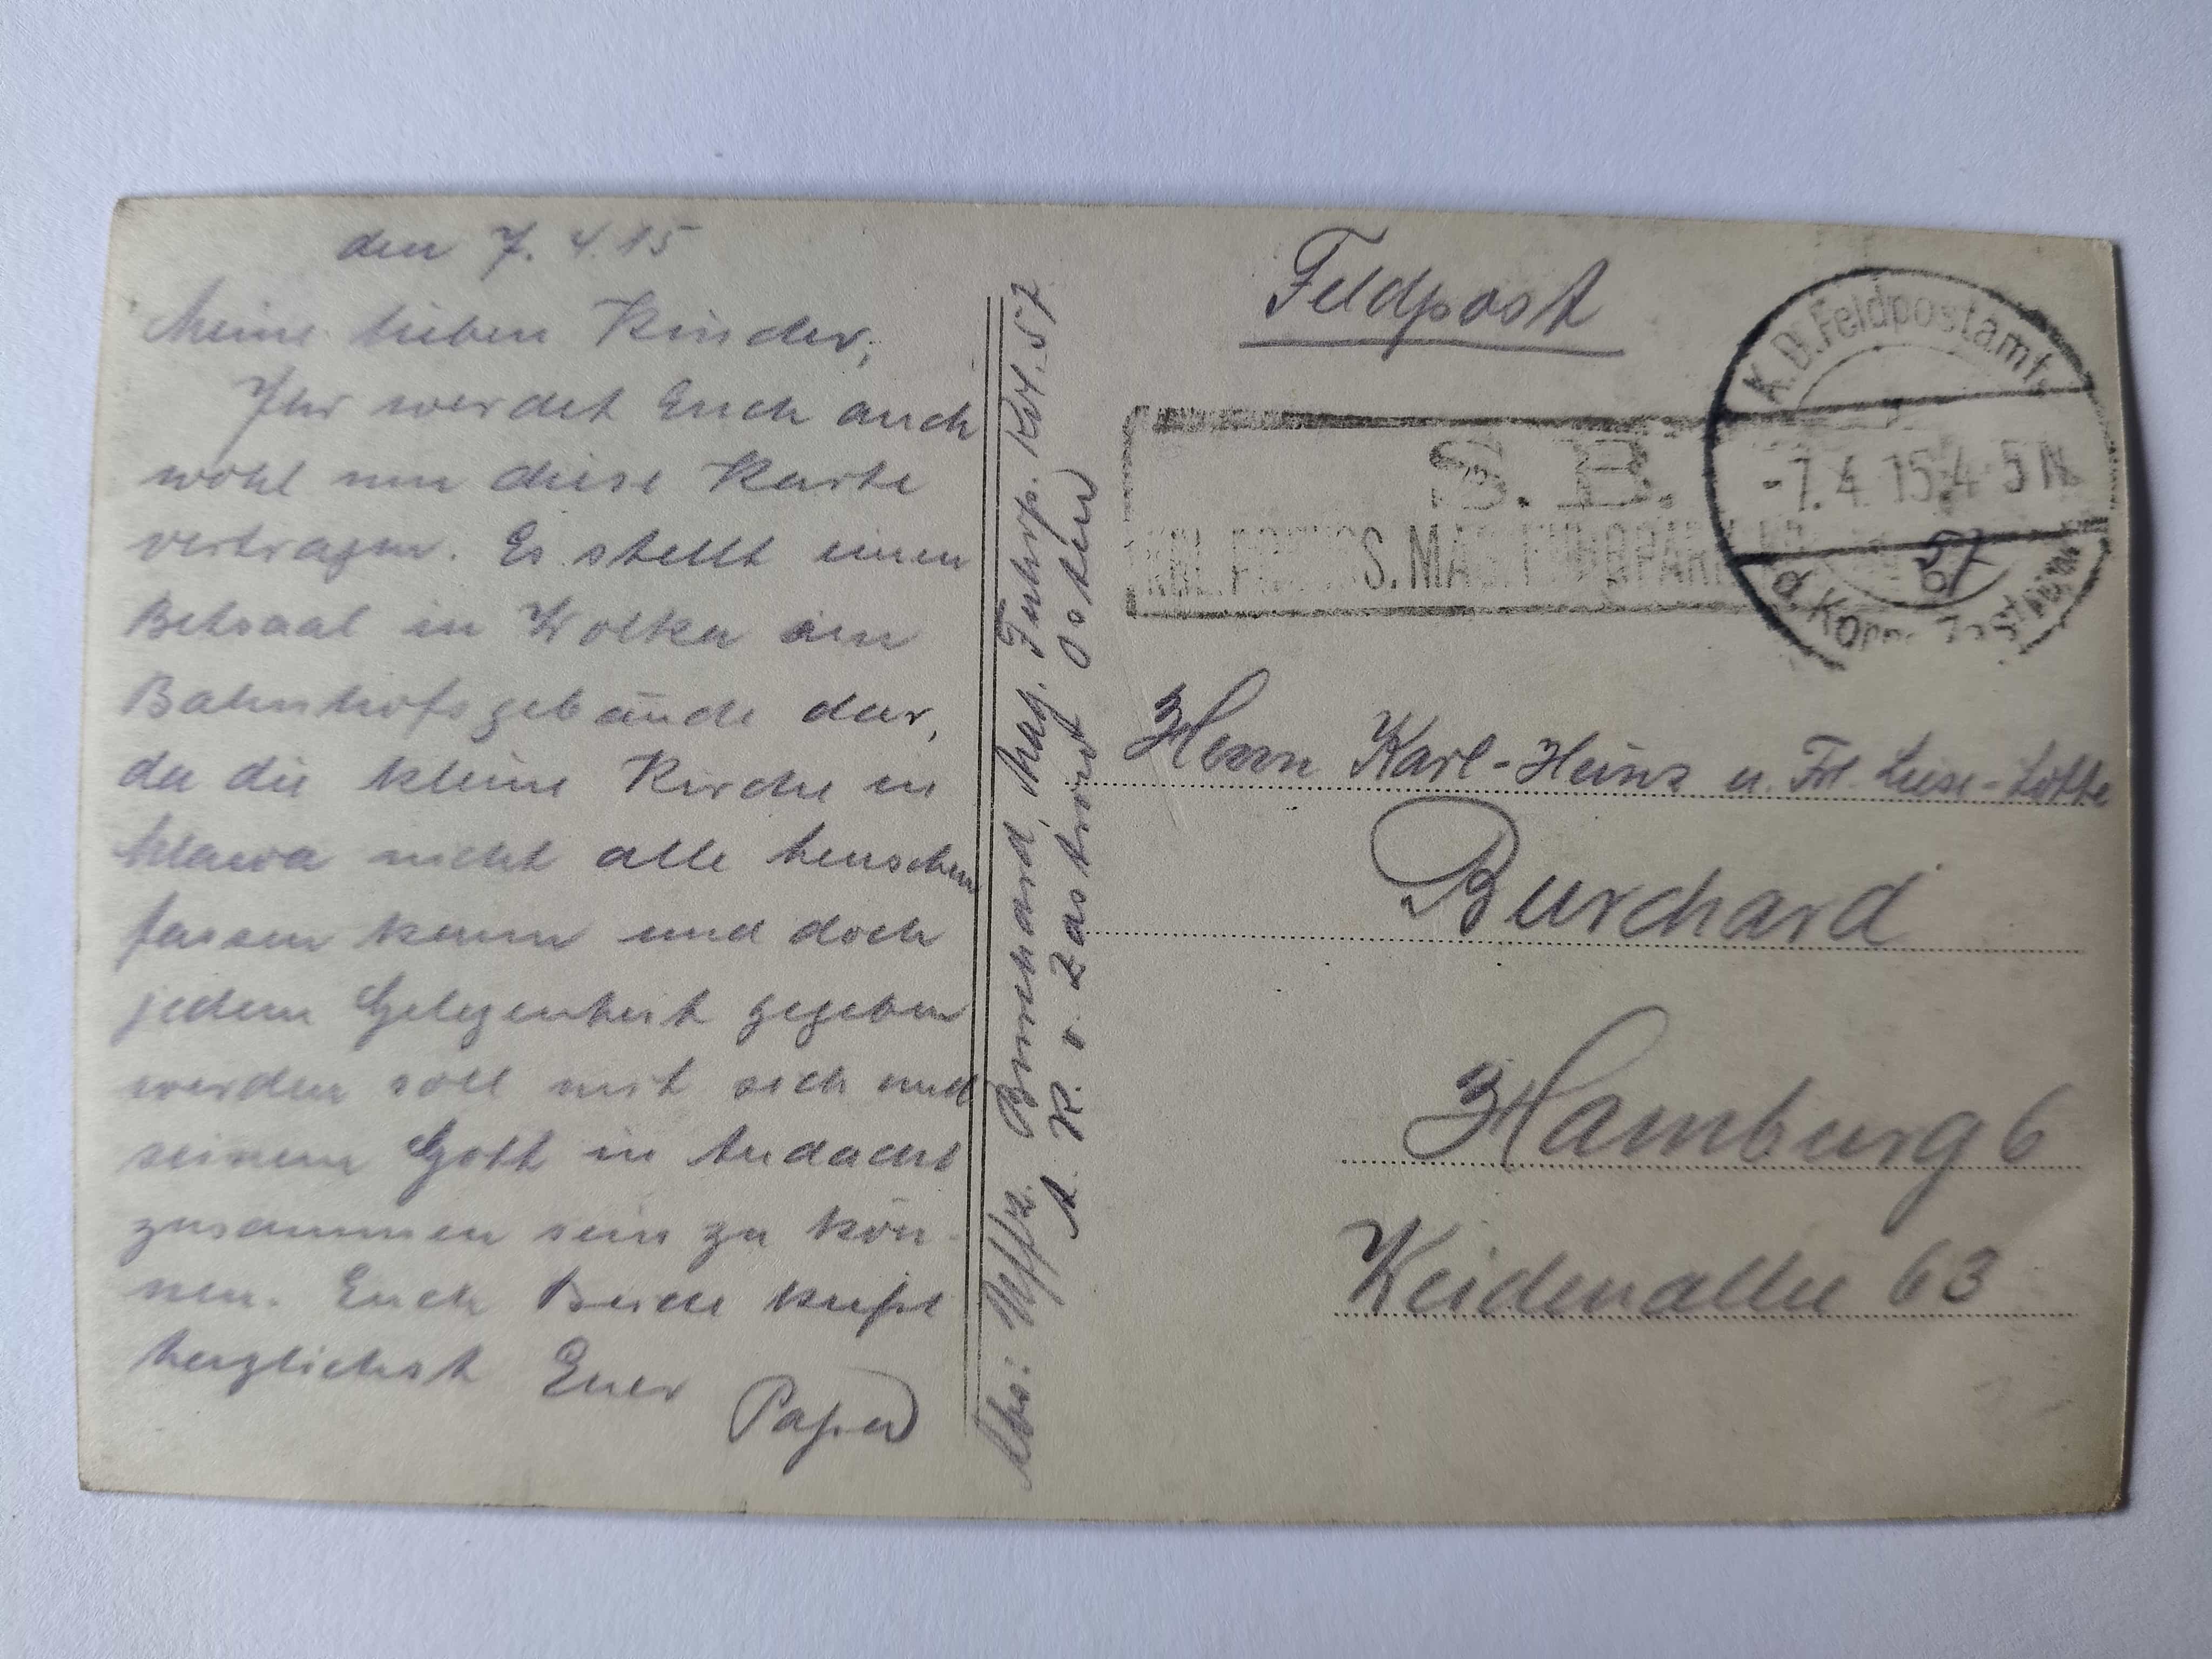 den 7. 4. 15
Meine lieben Kinder,
Ihr werdet Euch auch
wohl nun diese Karte
vertragen. Es stellt einen
Betsaal in Wolka im
Bahnhofsgebäude dar,
da die kleine Kirche in
Mlawa nicht alle Menschen
fassen kann und doch
jedem Gelegenheit gegeben
werden soll mit sich und
seinem Gott in Andacht
zusammen sein zu kön-
nen. Euch Beide küßt
herzlichst Euer Papa
Abs: Uffz. Burchard, Mag. Fuhrp. Kol. 57
A. K. v. Zastrow Osten
Feldpost
K.D. Feldpostamt
-7. 4. 15. 4-5 N.
d. Korps Zastrow
S. B.
KGL. PREUSS. MAG. FUHRPARK
57
Herrn Karl-Heinz u. Frl. Liese-Lotte
Burchard
Hamburg 6
Weidenallee 63